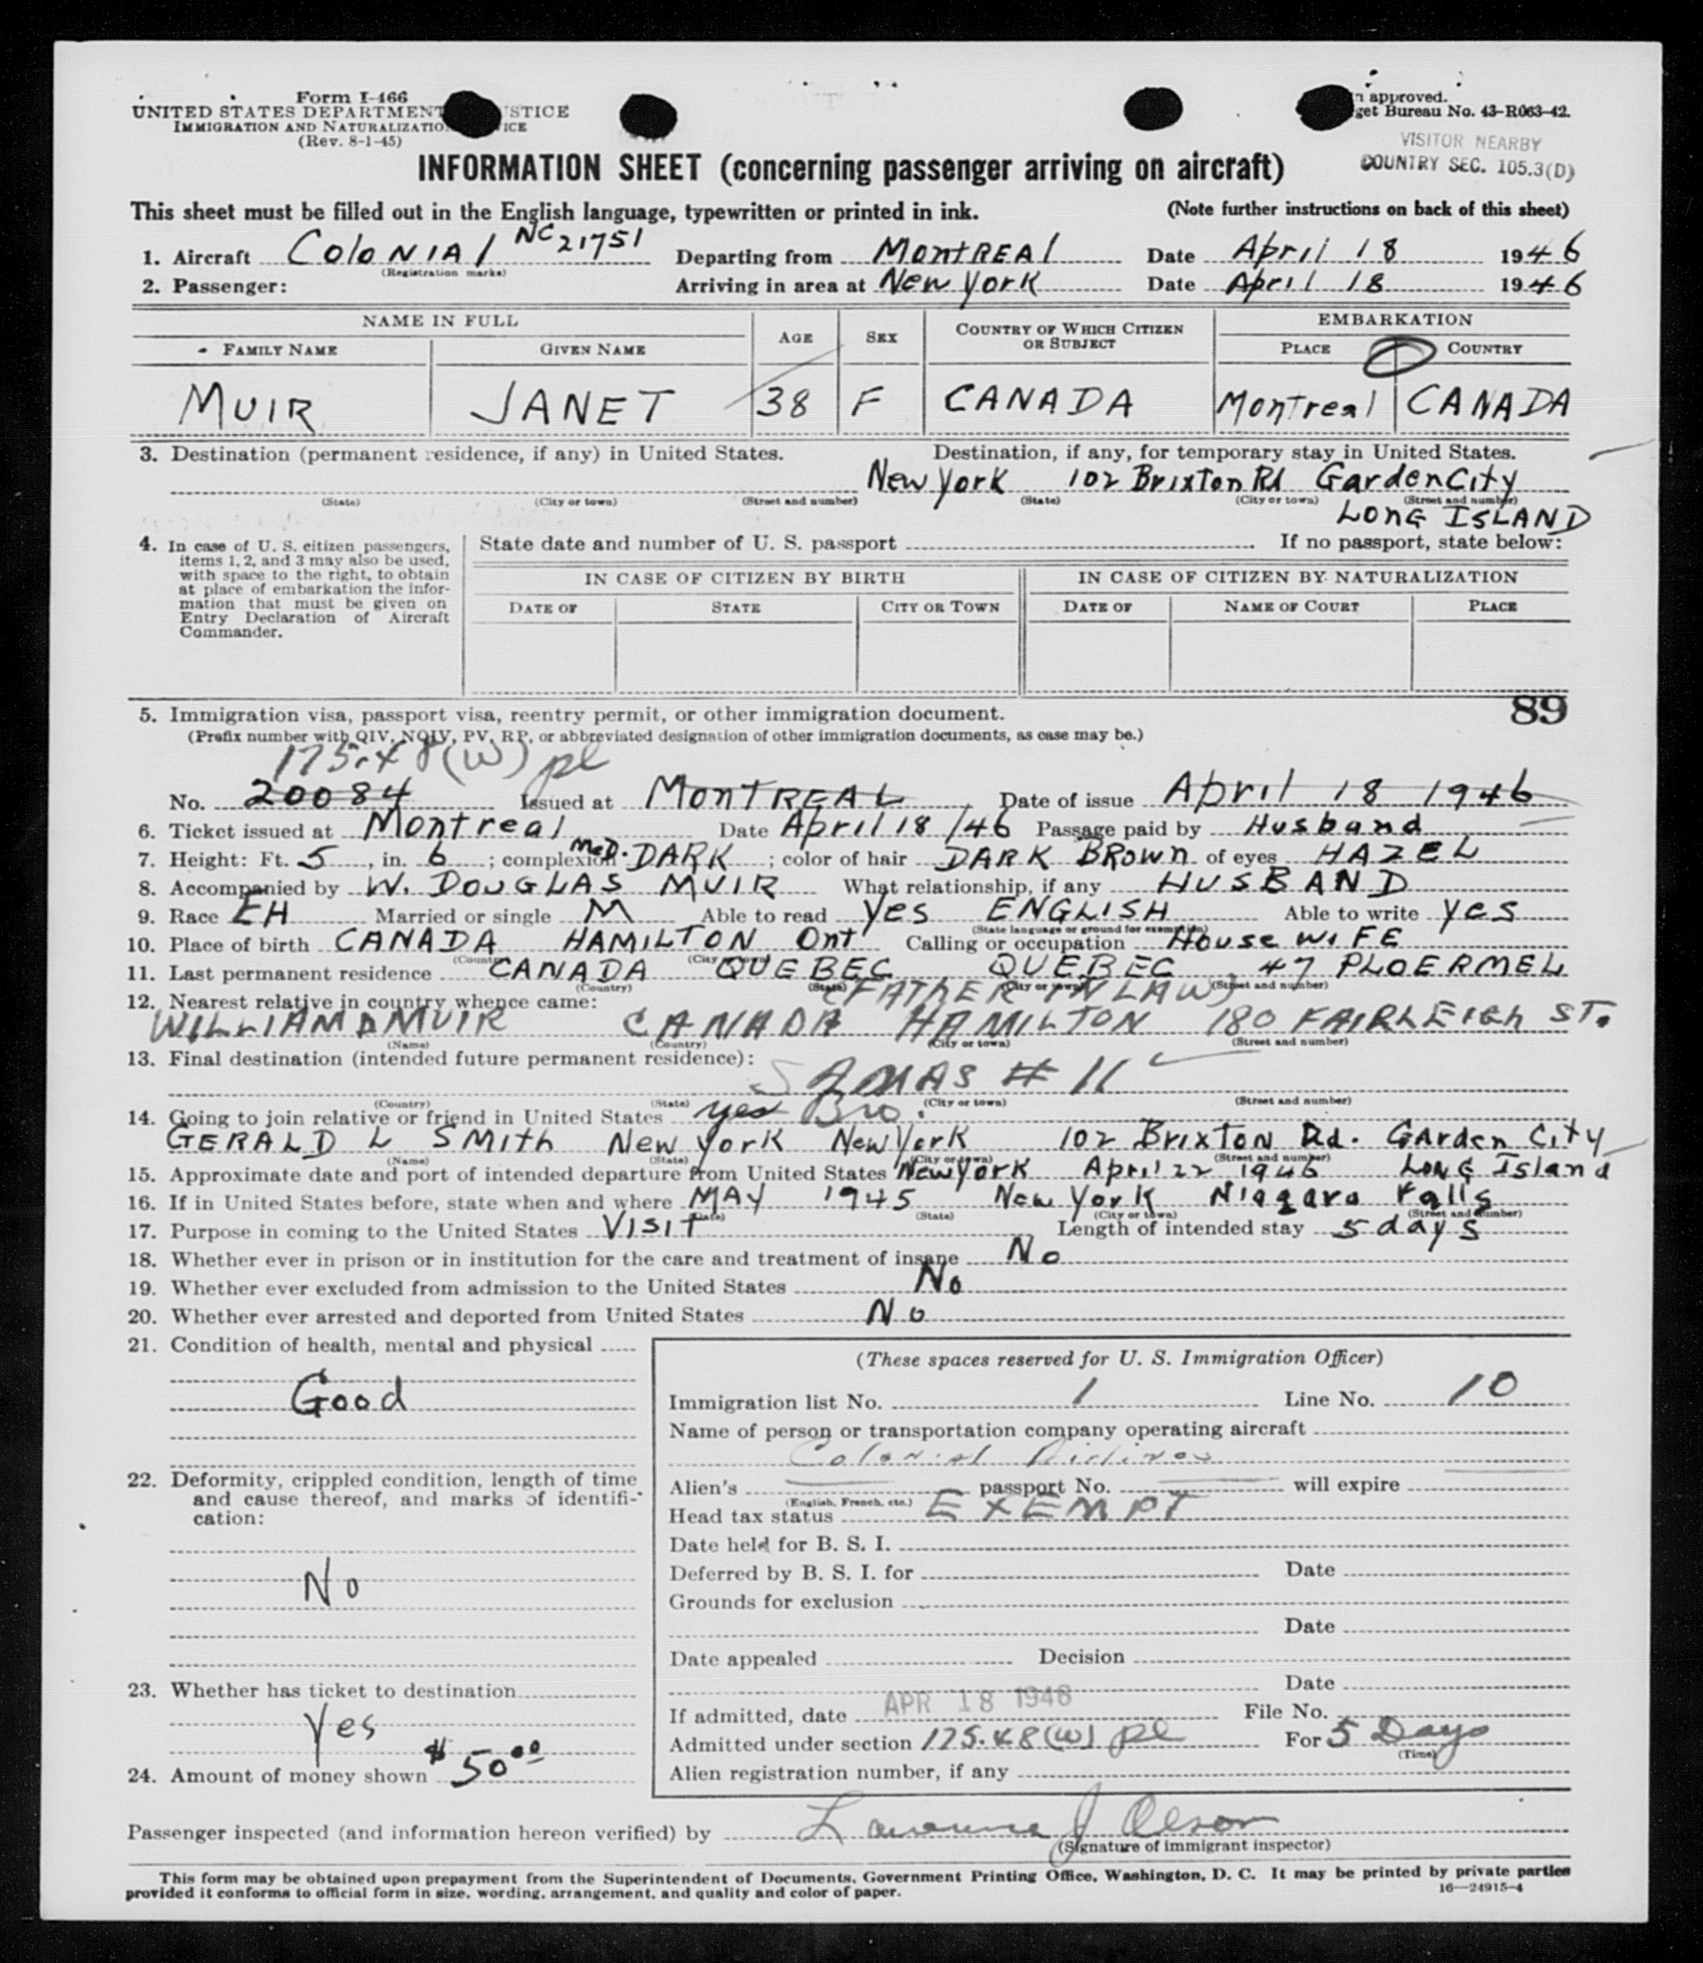 Form I-466
UNITED STATES DEPARTMENT STICE
IMMIGRATION AND NATURALIZATIO ICE
(Rev. 8-1-45)
n approved.
get Bureau No. 43-R063-42.
VISITOR NEARBY
COUNTRY SEC. 105.3(D)
INFORMATION SHEET (concerning passenger arriving on aircraft)
This sheet must be filled out in the English language, typewritten or printed in ink. (Note further instructions on back of this sheet)
1. Aircraft COLONIAL NC21751 Departing from MONTREAL Date April 18 1946
(Registration marks)
2. Passenger: Arriving in area at New York Date April 18 1946
NAME IN FULL AGE SEX COUNTRY OF WHICH CITIZEN OR SUBJECT EMBARKATION
FAMILY NAME GIVEN NAME PLACE COUNTRY
MUIR JANET 38 F CANADA Montreal CANADA
3. Destination (permanent residence, if any) in United States. Destination, if any, for temporary stay in United States.
New York 102 Brixton Rd Garden City
(State) (City or town) (Street and number) (State) (City or town) (Street and number)
LONG ISLAND
4. In case of U. S. citizen passengers, items 1, 2, and 3 may also be used, with space to the right, to obtain at place of embarkation the information that must be given on Entry Declaration of Aircraft Commander.
State date and number of U. S. passport If no passport, state below:
IN CASE OF CITIZEN BY BIRTH IN CASE OF CITIZEN BY NATURALIZATION
DATE OF STATE CITY OR TOWN DATE OF NAME OF COURT PLACE
89
5. Immigration visa, passport visa, reentry permit, or other immigration document.
(Prefix number with QIV, NQIV, PV, RP, or abbreviated designation of other immigration documents, as case may be.)
175.48(w) pl
No. 20084 Issued at MONTREAL Date of issue April 18 1946
6. Ticket issued at Montreal Date April 18/46 Passage paid by Husband
7. Height: Ft. 5, in. 6; complexion MED. DARK; color of hair DARK BROWN of eyes HAZEL
8. Accompanied by W. DOUGLAS MUIR What relationship, if any HUSBAND
9. Race EH Married or single M Able to read yes ENGLISH Able to write yes
(State language or ground for exemption)
10. Place of birth CANADA HAMILTON Ont Calling or occupation HOUSEWIFE
(Country) (City or town)
11. Last permanent residence CANADA QUEBEC QUEBEC 47 PLOERMEL
(Country) (State) (City or town) (Street and number)
(FATHER IN LAW)
12. Nearest relative in country whence came:
WILLIAM D MUIR CANADA HAMILTON 180 FAIRLEIGH ST.
(Name) (Country) (City or town) (Street and number)
13. Final destination (intended future permanent residence):
SAMAS # 11
(Country) (State) (City or town) (Street and number)
14. Going to join relative or friend in United States yes Bro.
GERALD L SMITH New York New York 102 Brixton Rd. Garden City
(Name) (State) (City or town) (Street and number)
15. Approximate date and port of intended departure from United States New York April 22 1946 LONG Island
16. If in United States before, state when and where MAY 1945 New York Niagara Falls
(Date) (State) (City or town) (Street and number)
17. Purpose in coming to the United States VISIT Length of intended stay 5 days
18. Whether ever in prison or in institution for the care and treatment of insane No
19. Whether ever excluded from admission to the United States No
20. Whether ever arrested and deported from United States No
21. Condition of health, mental and physical
Good
22. Deformity, crippled condition, length of time and cause thereof, and marks of identification:
No
23. Whether has ticket to destination
Yes
24. Amount of money shown $50.00
(These spaces reserved for U. S. Immigration Officer)
Immigration list No. 1 Line No. 10
Name of person or transportation company operating aircraft
Colonial Airlines
Alien's passport No. will expire
(English, French, etc.)
Head tax status EXEMPT
Date held for B. S. I.
Deferred by B. S. I. for Date
Grounds for exclusion
Date
Date appealed Decision
Date
If admitted, date APR 18 1946 File No.
Admitted under section 175.48(w) pl For 5 Days
(Time)
Alien registration number, if any
Passenger inspected (and information hereon verified) by Lawrence J Olson
(Signature of immigrant inspector)
This form may be obtained upon prepayment from the Superintendent of Documents, Government Printing Office, Washington, D. C. It may be printed by private parties
provided it conforms to official form in size, wording, arrangement, and quality and color of paper.
16—24915-4